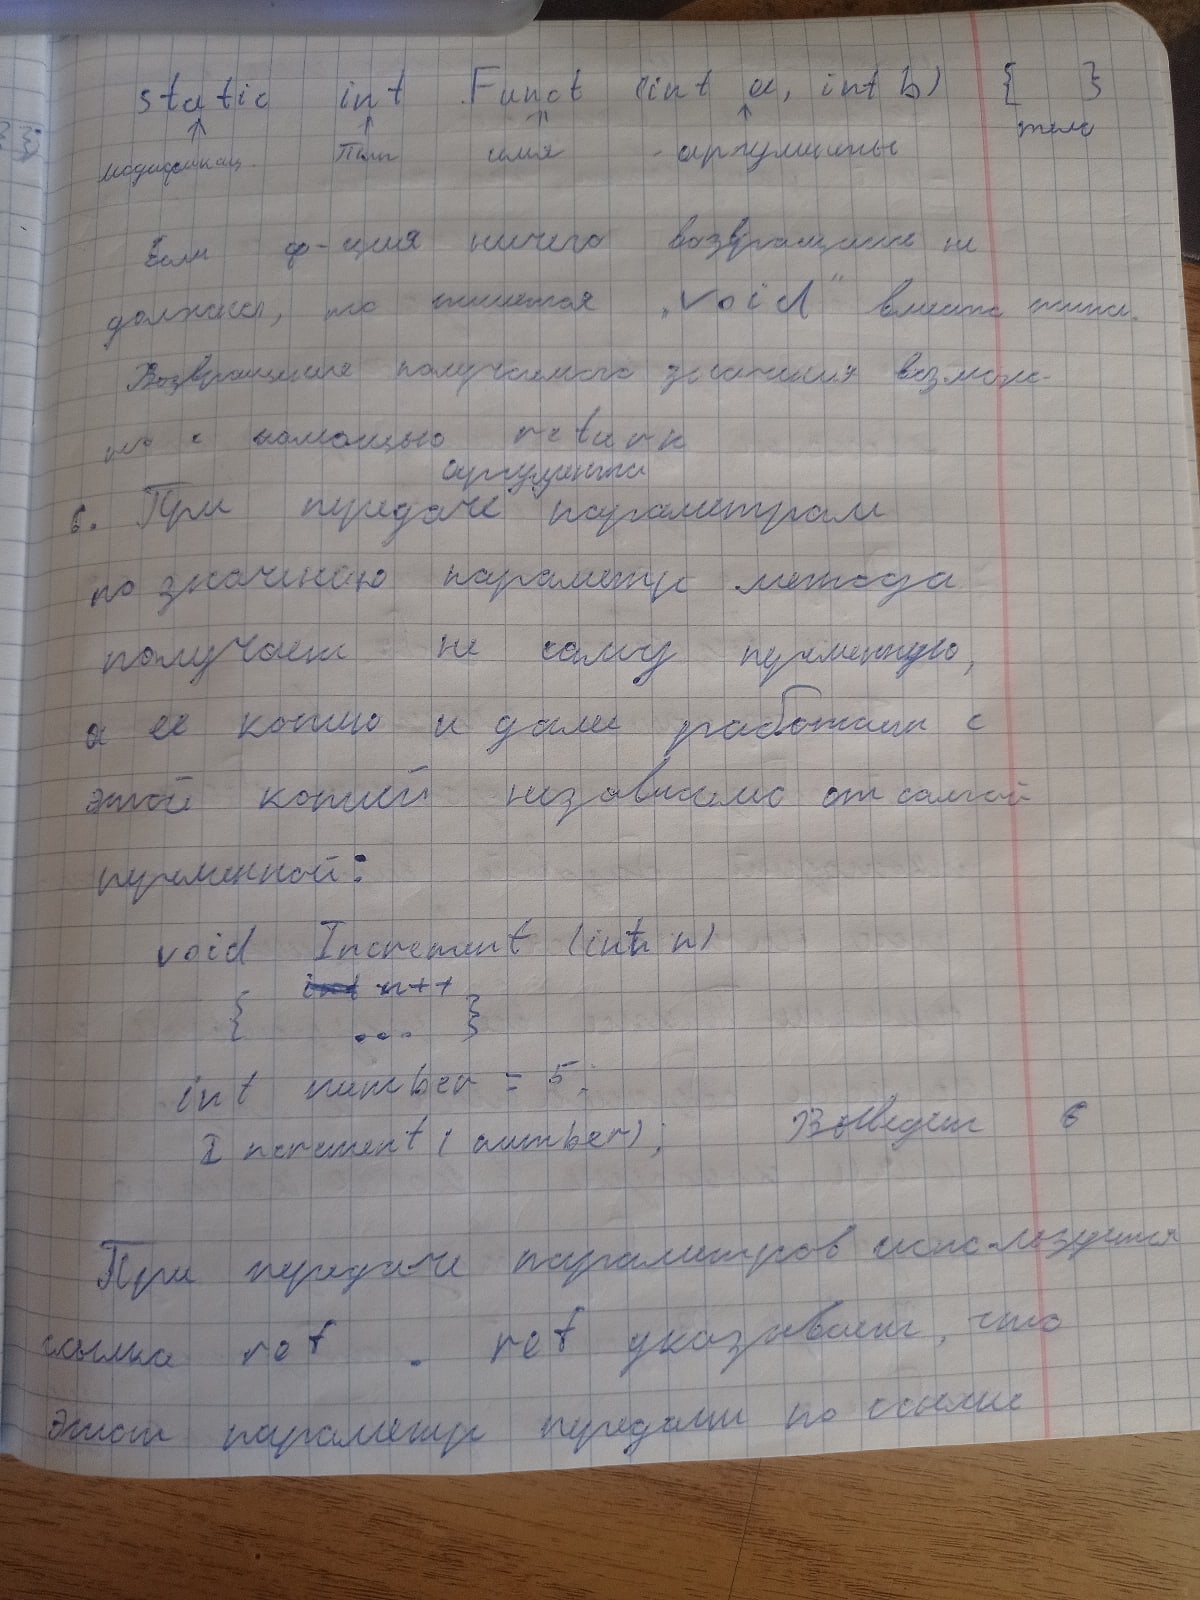 static int Funct (int a, int b) { }
модификац. Тип имя аргументы тело
Если ф-ция ничего возвращать не
должна, то пишется „void" вместо типа.
Возвращение получаемого значения возмож-
но с помощью return
аргумента
6. При передаче параметрам
по значению параметр метода
получает не саму переменную,
а ее копию и далее работает с
этой копией независимо от самой
переменной:
void Increment (int n)
n++
{ ... }
int number = 5;
Increment (number); Выведет 6
При передаче параметров используется
ссылка ref . ref указывает, что
этот параметр передали по ссылке